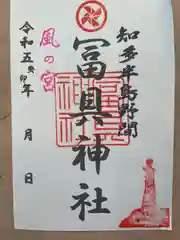 知多半島野間
冨具神社
風の宮
令和五癸卯年
月
日